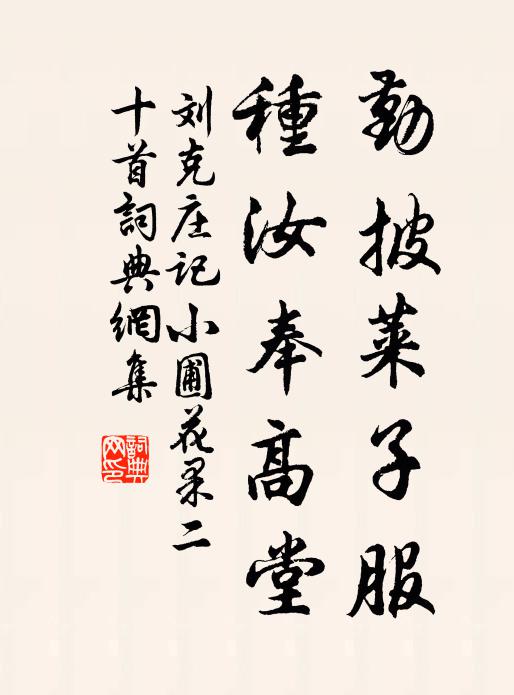 勤披莱子服
種汝奉高堂
刘克庄记小圃花果二
十首詞典網集
詞典
网印